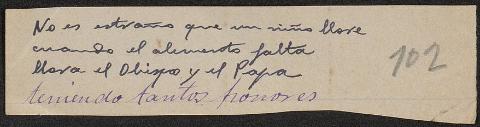 No es estraño que un niño llore
cuando el alemento falta
llora el Obispo y el Papa
teniendo tantos honores
102